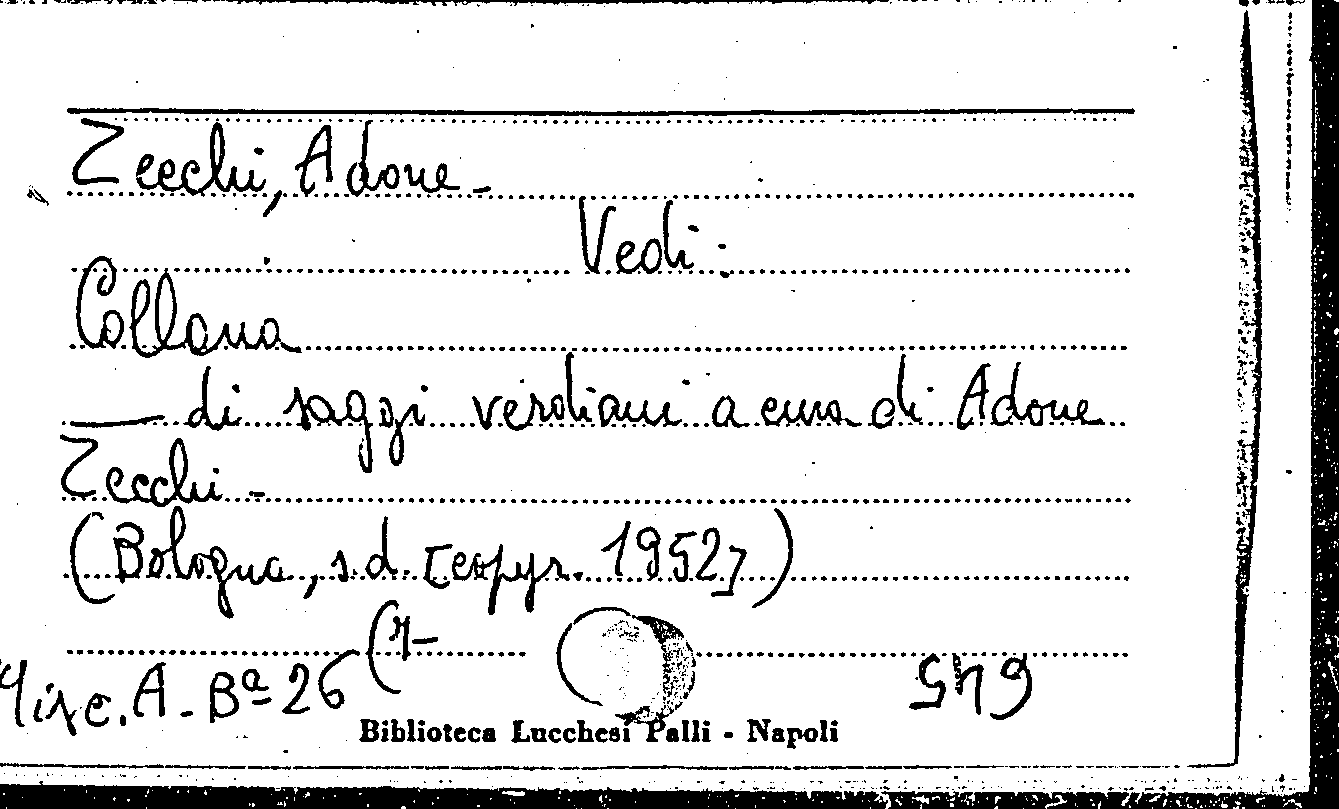 Zecchi, Adone -
Vedi:
Collana
— di saggi verdiani a cura di Adone
Zecchi -
(Bologna, s.d. [copyr. 1952])
Misc. A - Bª 26 (7-
645
Biblioteca Lucchesi Palli - Napoli